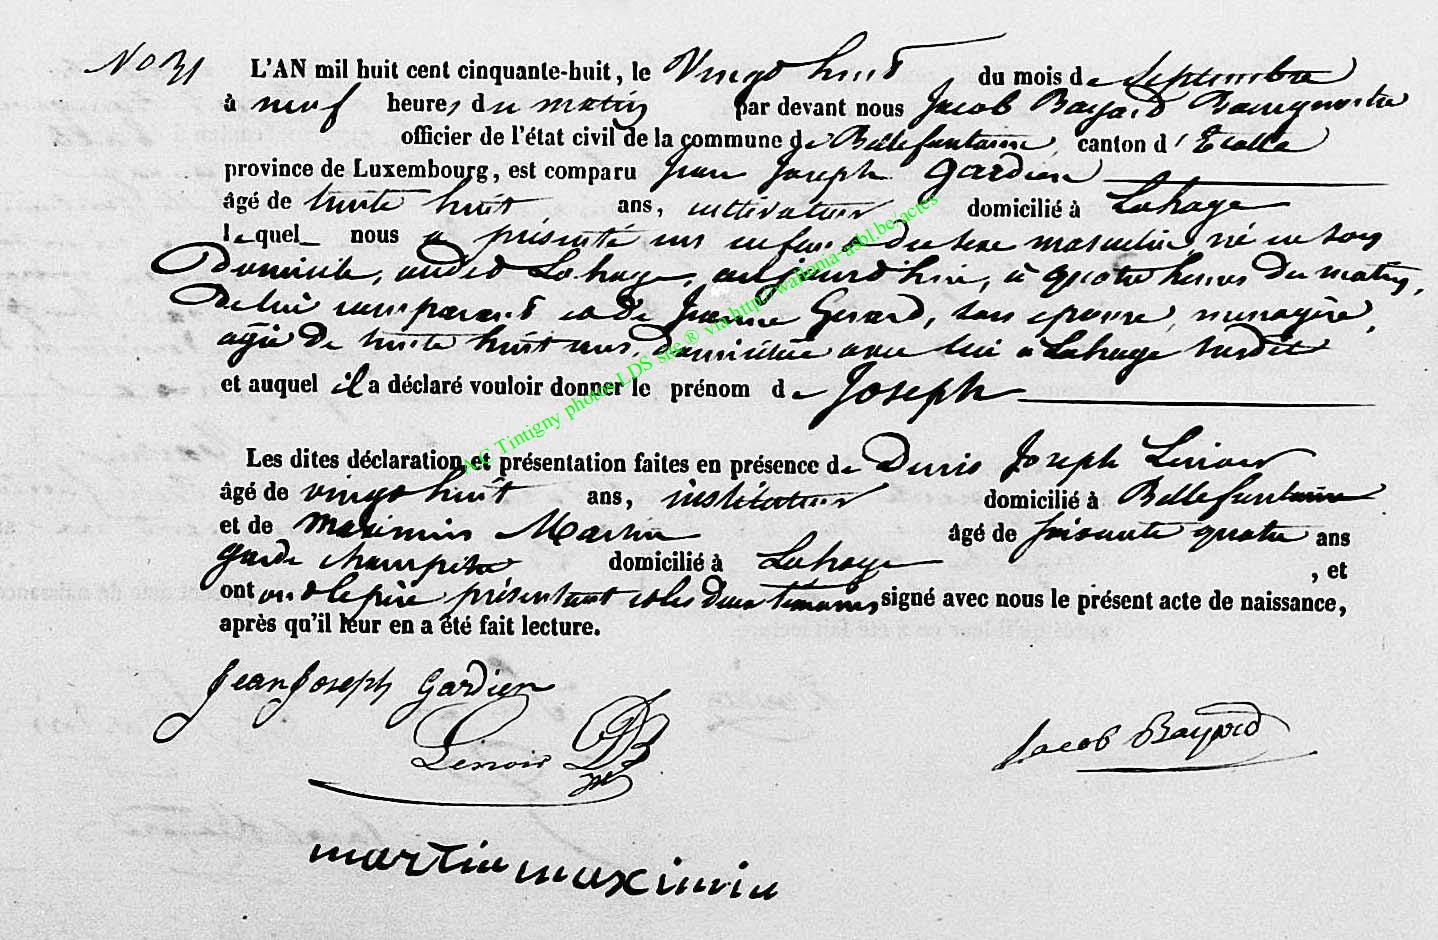 No 31
L'AN mil huit cent cinquante-huit, le Vingt huit du mois de Septembre
à neuf heures du matin par devant nous Jacob Bayard Bourgmestre
officier de l'état civil de la commune de Bellefontaine, canton d'Etalle
province de Luxembourg, est comparu Jean Joseph Gardien
âgé de trente huit ans, cultivateur domicilié à Lahage
lequel nous a présenté un enfant du sexe masculin né en son
Domicile, audit Lahage, aujourd'hui, à quatre heures du matin,
De lui comparant et de Jeanne Gerard, son épouse, menagère,
agée de trente huit ans, domiciliée avec lui à Lahage susdit
et auquel il a déclaré vouloir donner le prénom de Joseph
Les dites déclaration et présentation faites en présence de Denis Joseph Lenoir
âgé de vingt huit ans, instituteur domicilié à Bellefontaine
et de Maximin Martin âgé de soixante quatre ans
garde champêtre domicilié à Lahage, et
ont le père présentant et les deux témoins signé avec nous le présent acte de naissance,
après qu'il leur en a été fait lecture.
Jean Joseph Gardien
Lenoir
Jacob Bayard
martin maximin
AC Tintigny photos LDS srec ® via http://wallonia-asbl.be/actes